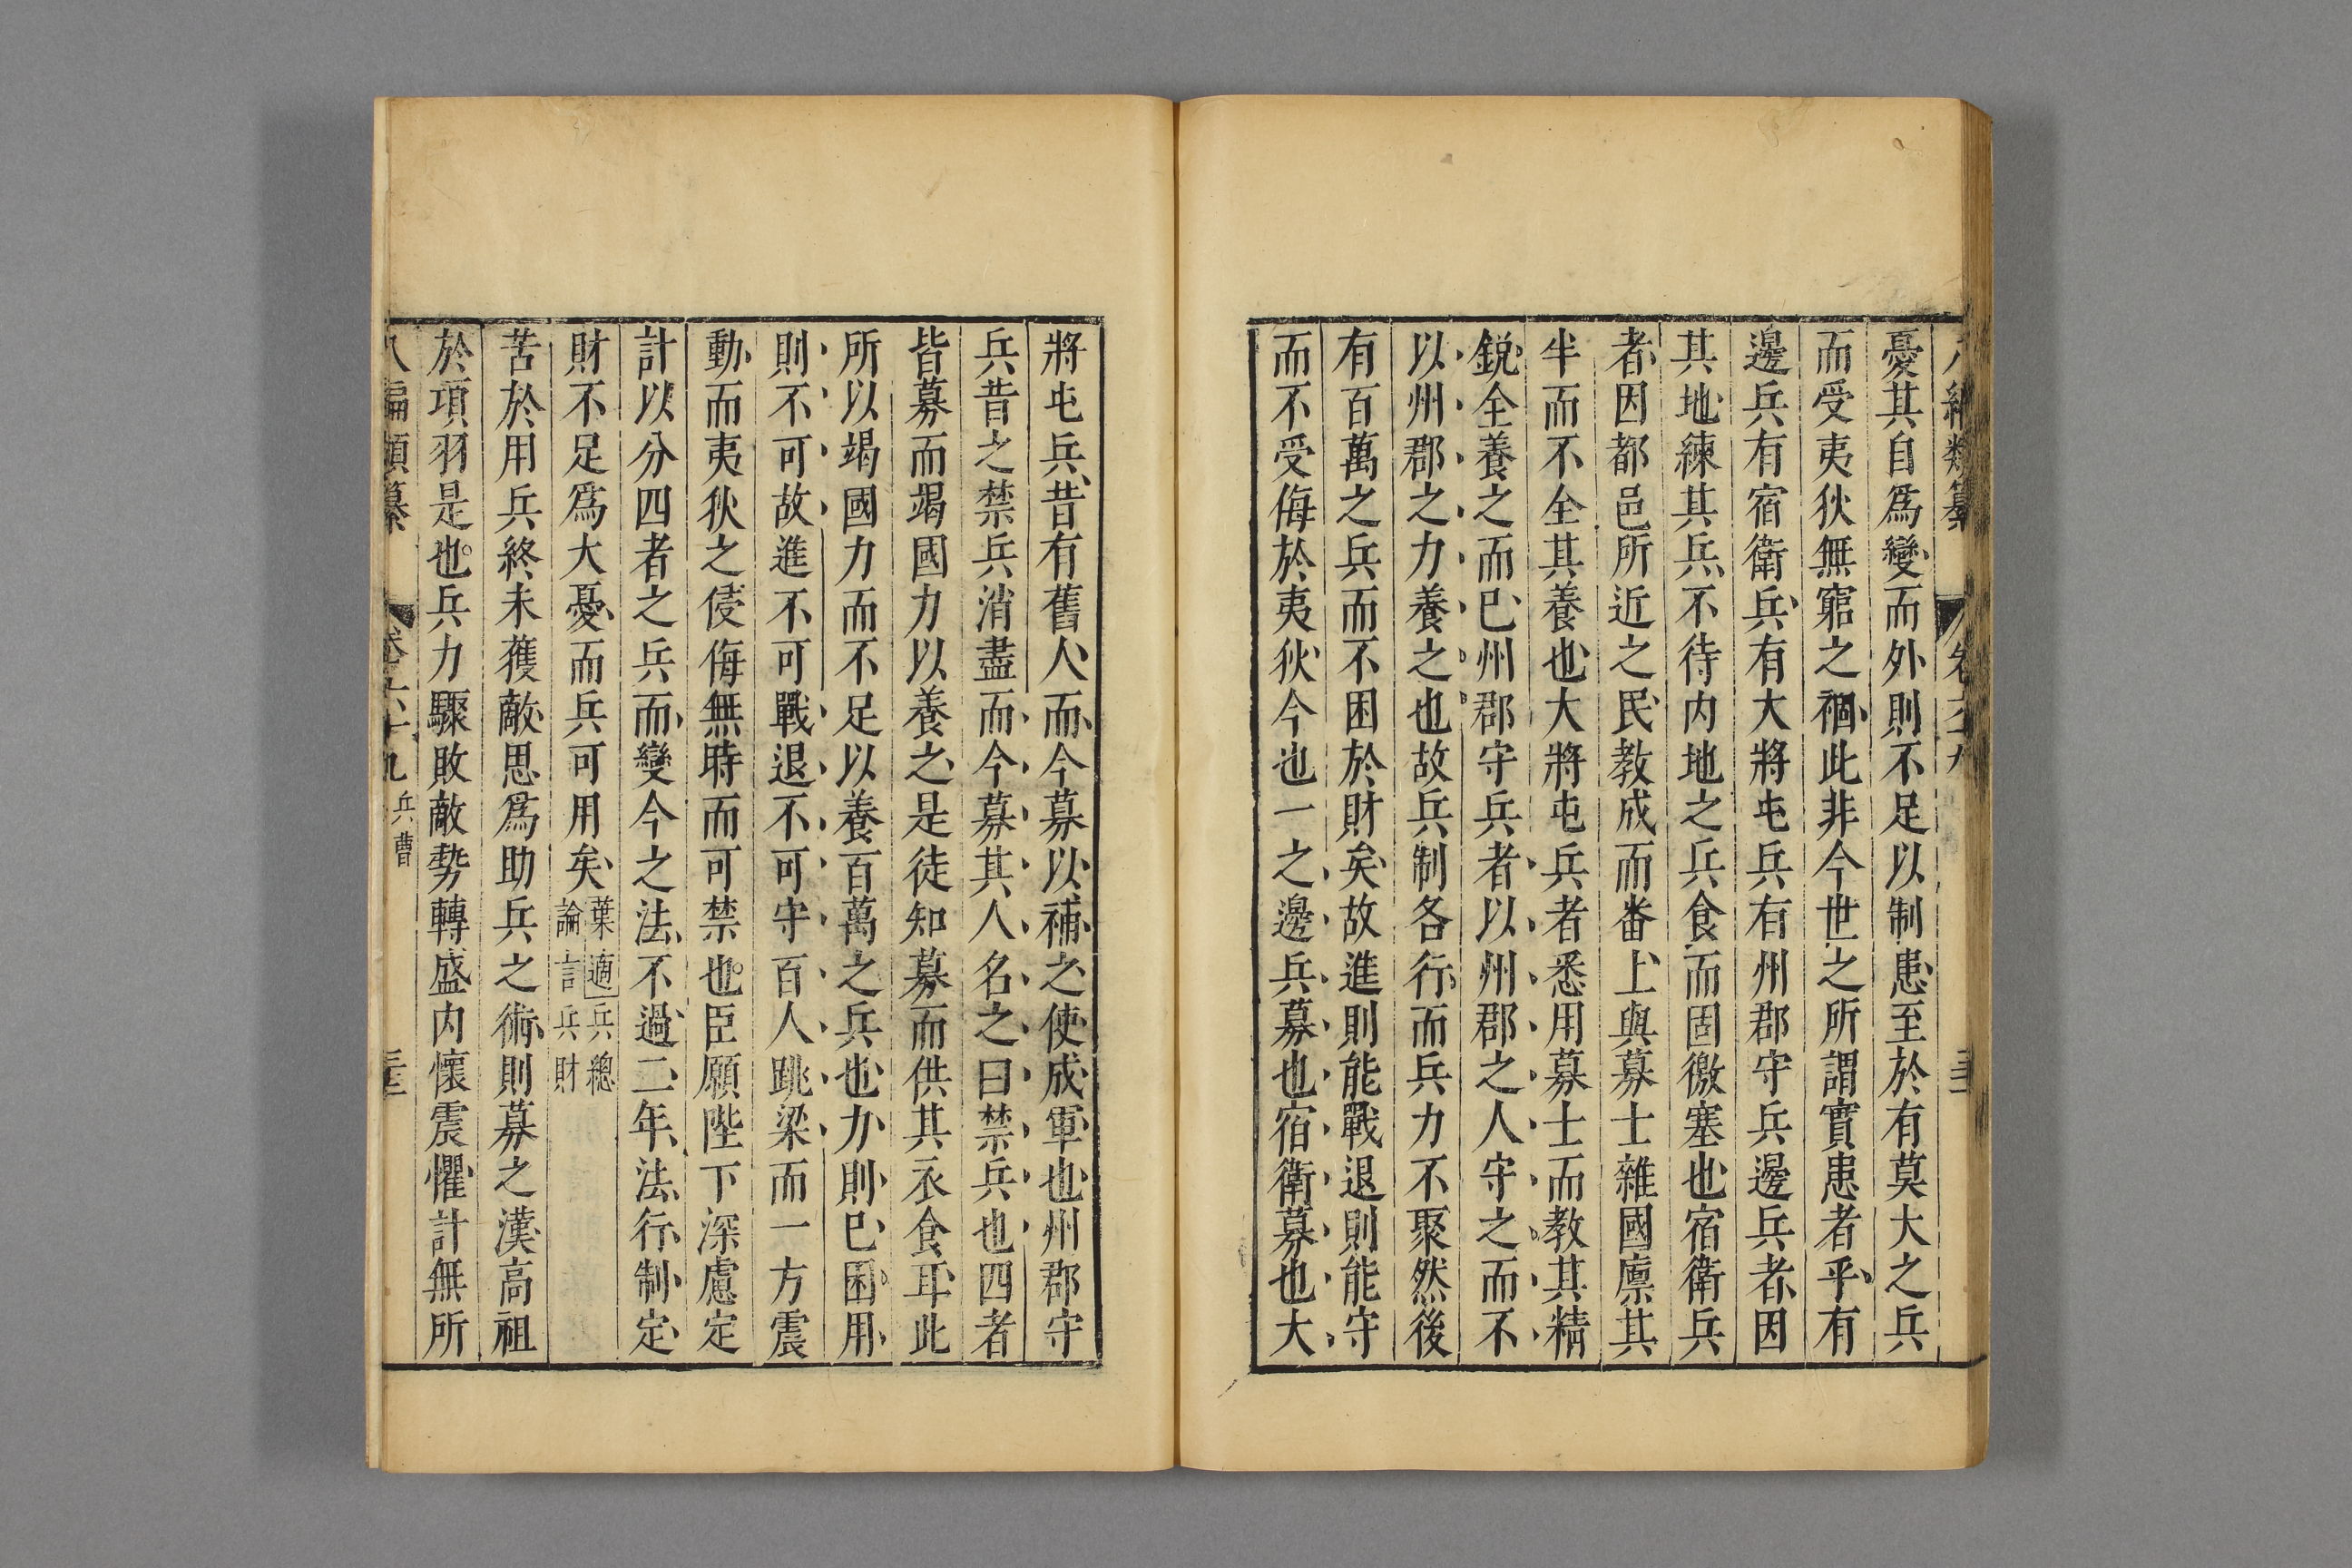 憂其自爲變而外則不足以制患至於有莫大之兵
而受夷狄無窮之禍此非今世之所謂實患者乎有
邊兵有宿衛兵有大將屯兵有州郡守兵邊兵者因
其地練其兵不待内地之兵食而固徼塞也宿衛兵
者因都邑所近之民教成而番上與募士雜國廪其
半而不全其養也大將屯兵者悉用募士而教其精
銳全養之而已州郡守兵者以州郡之人守之而不
以州郡之力養之也故兵制各行而兵力不聚然後
有百萬之兵而不困於財矣故進則能戰退則能守
而不受侮於夷狄今也一之邊兵募也宿衛募也大
將屯兵昔有舊人而今募以補之使成軍也州郡守
兵昔之禁兵消盡而今募其人名之曰禁兵也四者
皆募而竭國力以養之是徒知募而供其衣食耳此
所以竭國力而不足以養百萬之兵也力則已困用
則不可故進不可戰退不可守百人跳梁而一方震
動而夷狄之侵侮無時而可禁也臣願陛下深慮定
計以分四者之兵而變今之法不過二年法行制定
財不足爲大憂而兵可用矣
葉適兵總
論言兵財
苦於用兵終未獲敵思爲助兵之術則募之漢高祖
於項羽是也兵力驟敗敵勢轉盛内懷震懼計無所
八編類纂 卷六十九 兵曹 三十三